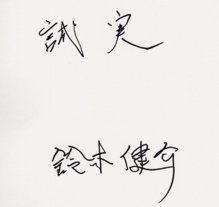 誠実
鈴木健介